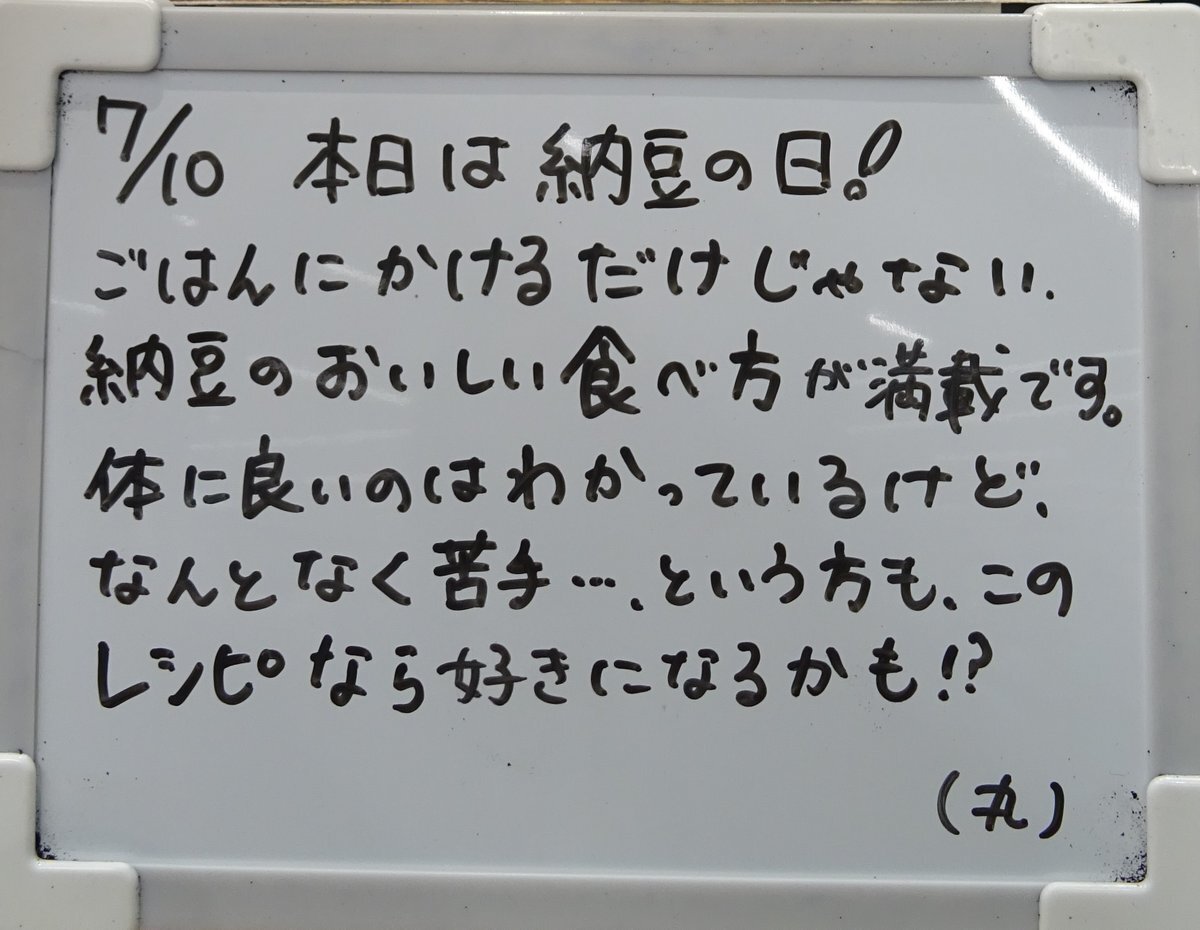 7/10 本日は納豆の日!
ごはんにかけるだけじゃない、
納豆のおいしい食べ方が満載です。
体に良いのはわかっているけど、
なんとなく苦手…、という方も、この
レシピなら好きになるかも!?
(丸)